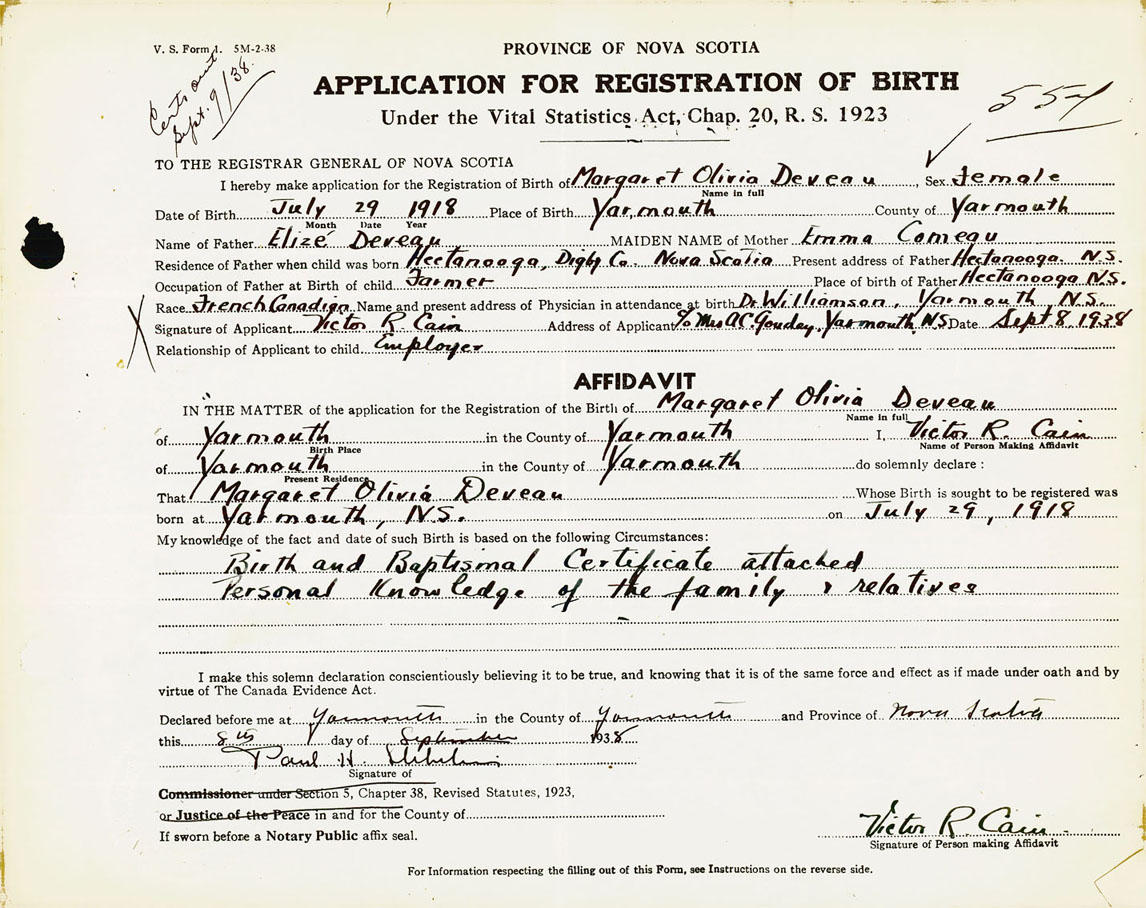 V. S. Form 1. 5M-2-38
Certs out
Sept. 9/38.
PROVINCE OF NOVA SCOTIA
APPLICATION FOR REGISTRATION OF BIRTH
Under the Vital Statistics Act, Chap. 20, R. S. 1923
554
TO THE REGISTRAR GENERAL OF NOVA SCOTIA
I hereby make application for the Registration of Birth of Margaret Olivia Deveau, Sex Female
Name in full
Date of Birth July 29 1918 Place of Birth Yarmouth County of Yarmouth
Month Date Year
Name of Father Elizé Deveau MAIDEN NAME of Mother Emma Comeau
Residence of Father when child was born Hectanooga, Digby Co. Nova Scotia Present address of Father Hectanooga N.S.
Occupation of Father at Birth of child Farmer Place of birth of Father Hectanooga N.S.
Race French Canadian Name and present address of Physician in attendance at birth Dr Williamson, Yarmouth, N.S.
X Signature of Applicant Victor R. Cain Address of Applicant c/o Mrs A.C. Gouday, Yarmouth, NS Date Sept 8, 1938
Relationship of Applicant to child Employer
AFFIDAVIT
IN THE MATTER of the application for the Registration of the Birth of Margaret Olivia Deveau
Name in full
of Yarmouth in the County of Yarmouth I, Victor R. Cain
Birth Place Name of Person Making Affidavit
of Yarmouth in the County of Yarmouth do solemnly declare:
Present Residence
That Margaret Olivia Deveau Whose Birth is sought to be registered was
born at Yarmouth, N.S. on July 29, 1918
My knowledge of the fact and date of such Birth is based on the following Circumstances:
Birth and Baptismal Certificate attached
Personal Knowledge of the family & relatives
I make this solemn declaration conscientiously believing it to be true, and knowing that it is of the same force and effect as if made under oath and by
virtue of The Canada Evidence Act.
Declared before me at Yarmouth in the County of Yarmouth and Province of Nova Scotia
this 8th day of September 1938
Paul H.
Signature of
Commissioner under Section 5, Chapter 38, Revised Statutes, 1923,
or Justice of the Peace in and for the County of
If sworn before a Notary Public affix seal.
Victor R. Cain
Signature of Person making Affidavit
For Information respecting the filling out of this Form, see Instructions on the reverse side.